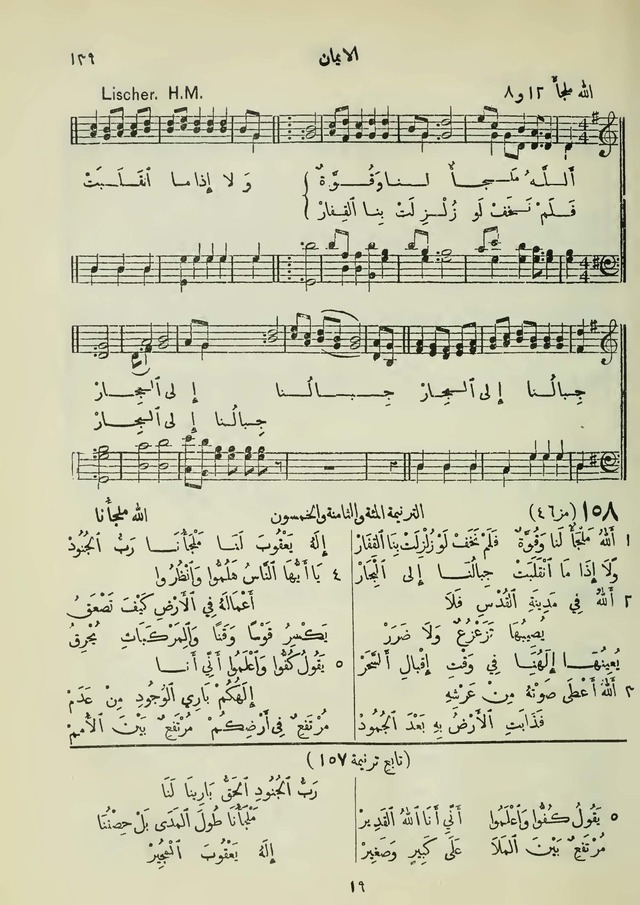 الايمان ١٣٩
الله ملجأٌ ١٢ و ٨ Lischer. H.M.
أَللّٰهُ مَلـجـأٌ لـنـا وَقُـوَّةٌ وَلا إذا ما ٱنقَلَبَتْ
فَـلَمْ نَـخَفْ لَو زُلـزِلَتْ بِنا القِفارْ
جِـبالُـنا إلى ٱلـبِحارْ جِـبـالُـنـا إلى ٱلـبِحارْ
جِـبالُـنا إلى ٱلـبِحارْ
١٥٨ (مز ٤٦) الترنيمة المئة والثامنة والخمسون الله ملجأُنا
١ أَللهُ مَلْجَأٌ لَنا وَقُوَّةٌ فَلَمْ نَخَفْ لَوْ زُلْزِلَتْ بِنا القِفَارْ
وَلَا إِذَا مَا ٱنْقَلَبَتْ جِبالُنَا إِلَى ٱلْبِحَارْ
٢ أَللهُ فِي مَدِينَةِ ٱلْقُدْسِ فَلَا
يُصِيبُهَا تَزَعْزُعٌ وَلَا ضَرَرْ
يُعِينُهَا إِلَهُنَا فِي وَقْتِ إِقْبَالِ ٱلسَّحَرْ
٣ أَللهُ أَعْطَى صَوْتَهُ مِنْ عَرْشِهِ
فَذَابَتِ ٱلْأَرْضُ بِهِ بَعْدَ ٱلْجُمُودْ
إِلَهُ يَعْقُوبَ لَنَا مَلْجَأُنَا رَبُّ ٱلْجُنُودْ
٤ يَا أَيُّهَا ٱلنَّاسُ هَلُمُّوا وَٱنْظُرُوا
أَعْمَالَهُ فِي ٱلْأَرْضِ كَيْفَ تَصْعَقُ
يَكْسِرُ قَوْسًا وَقَنًا وَٱلْمَرْكَبَاتِ يُحْرِقُ
٥ يَقُولُ كُفُّوا وَٱعْلَمُوا أَنِّي أَنَا
إِلَهُكُمْ بَارِي ٱلْوُجُودِ مِنْ عَدَمْ
مُرْتَفِعٌ فِي أَرْضِكُمْ مُرْتَفِعٌ بَيْنَ ٱلْأُمَمْ
(تابع ترنيمة ١٥٧)
٥ يَقُولُ كُفُّوا وَٱعْلَمُوا أَنِّي أَنَا ٱللهُ ٱلْقَدِيرْ
مُرْتَفِعٌ بَيْنَ ٱلْمَلَا عَلَى كَبِيرٍ وَصَغِيرْ
رَبُّ ٱلْجُنُودِ ٱلْحَقُّ بَارِينَا لَنَا
مَلْجَأُنَا طُولَ ٱلْمَدَى بَلْ حِصْنُنَا
إِلَهُ يَعْقُوبَ ٱلْمُجِيرْ
١٩